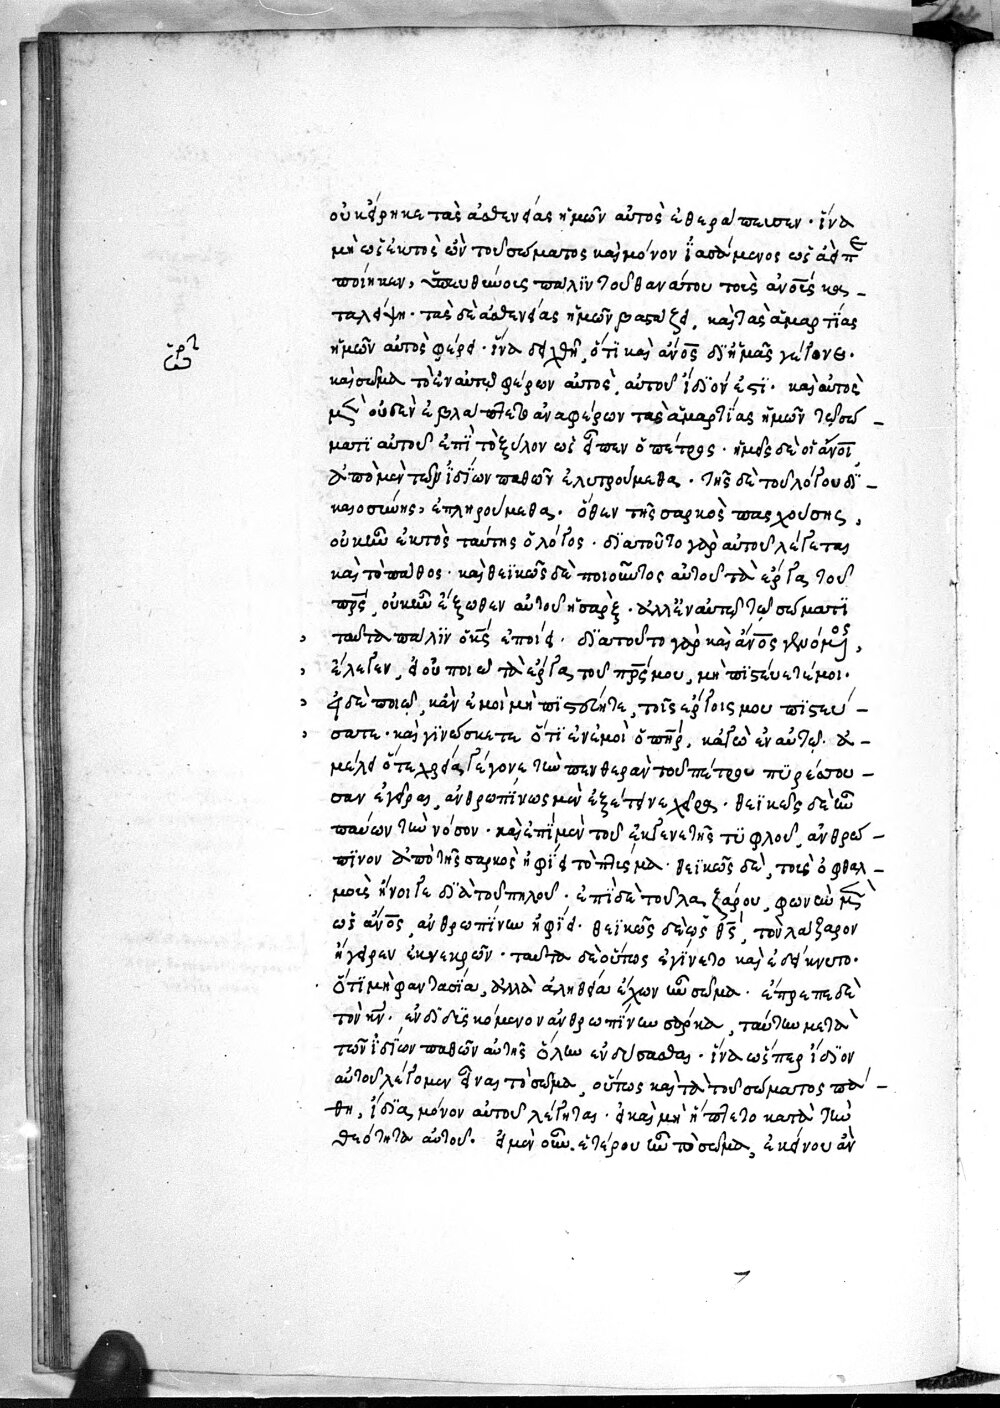 οὐκ εἴρηκε τὰς ἀσθενείας ἡμῶν αὐτὸς ἐθεράπευσεν · ἵνα
μὴ ὡς ἐκτὸς ὢν τοῦ σώματος καὶ μόνον ἰασάμενος ὡς ἀεὶ π
ποίηκεν, ὑπευθύνους πάλιν τοῦ θανάτου τοὺς ἀνοὺς κα –
ταλείψῃ · τὰς δὲ ἀσθενείας ἡμῶν βαστάζει, καὶ τὰς ἁμαρτίας
ἡμῶν αὐτὸς φέρει · ἵνα δειχθῇ, ὅτι καὶ ἄνος δι' ἡμᾶς γέγονε ·
καὶ σῶμα τὸ ἐν αὐτῷ φέρων αὐτὸς, αὐτοῦ ἴδιόν ἐστι · καὶ αὐτὸς
μὲν οὐδὲν ἐβλάπτετο ἀναφέρων τὰς ἁμαρτίας ἡμῶν τῷ σώ –
ματι αὐτοῦ ἐπὶ τὸ ξύλον ὡς εἶπεν ὁ πέτρος · ἡμεῖς δὲ οἱ ἄνοι,
ἀπὸ μὲν τῶν ἰδίων παθῶν ἐλυτρούμεθα · τῆς δὲ τοῦ λόγου δι –
καιοσύνης, ἐπληρούμεθα · ὅθεν τῆς σαρκὸς πασχούσης,
οὐκ ἦν ἐκτὸς ταύτης ὁ λόγος · διὰ τοῦτο γὰρ αὐτοῦ λέγεται
καὶ τὸ πάθος · καὶ θεϊκῶς δὲ ποιοῦντος αὐτοῦ τὰ ἔργα τοῦ
πρς, οὐκ ἦν ἔξωθεν αὐτοῦ ἡ σάρξ · ἀλλ' ἐν αὐτῷ τῷ σώματι
ταῦτα πάλιν ὁ κς ἐποίει · διὰ τοῦτο γὰρ καὶ ἄνος γενόμενος,
ἔλεγεν, εἰ οὐ ποιῶ τὰ ἔργα τοῦ πρς μου, μὴ πιστεύετέ μοι ·
εἰ δὲ ποιῶ, κἂν ἐμοὶ μὴ πιστεύητε, τοῖς ἔργοις μου πιστεύ –
σατε · καὶ γινώσκετε ὅτι ἐν ἐμοὶ ὁ πηρ, κἀγὼ ἐν αὐτῷ · ἀ –
μέλει ὅτε χρεία γέγονε τὴν πενθερὰν τοῦ πέτρου πυρέσσου –
σαν ἐγεῖραι, ἀνθρωπίνως μὲν ἐξέτεινε χεῖρα · θεϊκῶς δὲ ἦν
παύων τὴν νόσον · καὶ ἐπὶ μὲν τοῦ ἐκ γενετῆς τυφλοῦ, ἀνθρώ –
πινον ἀπὸ τῆς σαρκὸς ἠφίει τὸ πτύσμα · θεϊκῶς δὲ, τοὺς ὀφθαλ –
μοὺς ἤνοιγε διὰ τοῦ πηλοῦ · ἐπὶ δὲ τοῦ λαζάρου, φωνὴν μὲν
ὡς ἄνος, ἀνθρωπίνην ἠφίει · θεϊκῶς δὲ ὡς θς, τὸν λάζαρον
ἤγειρεν ἐκ νεκρῶν · ταῦτα δὲ οὕτως ἐγίνετο καὶ ἐδείκνυτο ·
ὅτι μὴ φαντασίᾳ, ἀλλὰ ἀληθείᾳ ἔχων ἦν σῶμα · ἔπρεπε δὲ
τὸν κν · ἐνδιδυσκόμενον ἀνθρωπίνην σάρκα, ταύτην μετὰ
τῶν ἰδίων παθῶν αὐτῆς ὅλην ἐνδύσασθαι · ἵνα ὥσπερ ἴδιον
αὐτοῦ λέγομεν εἶναι τὸ σῶμα, οὕτως καὶ τὰ τοῦ σώματος πά –
θη, ἴδια μόνον αὐτοῦ λέγηται · εἰ καὶ μὴ ἥπτετο κατὰ τὴν
θεότητα αὐτοῦ · εἰ μὲν οὖν ἑτέρου ἦν τὸ σῶμα, ἐκείνου ἂν